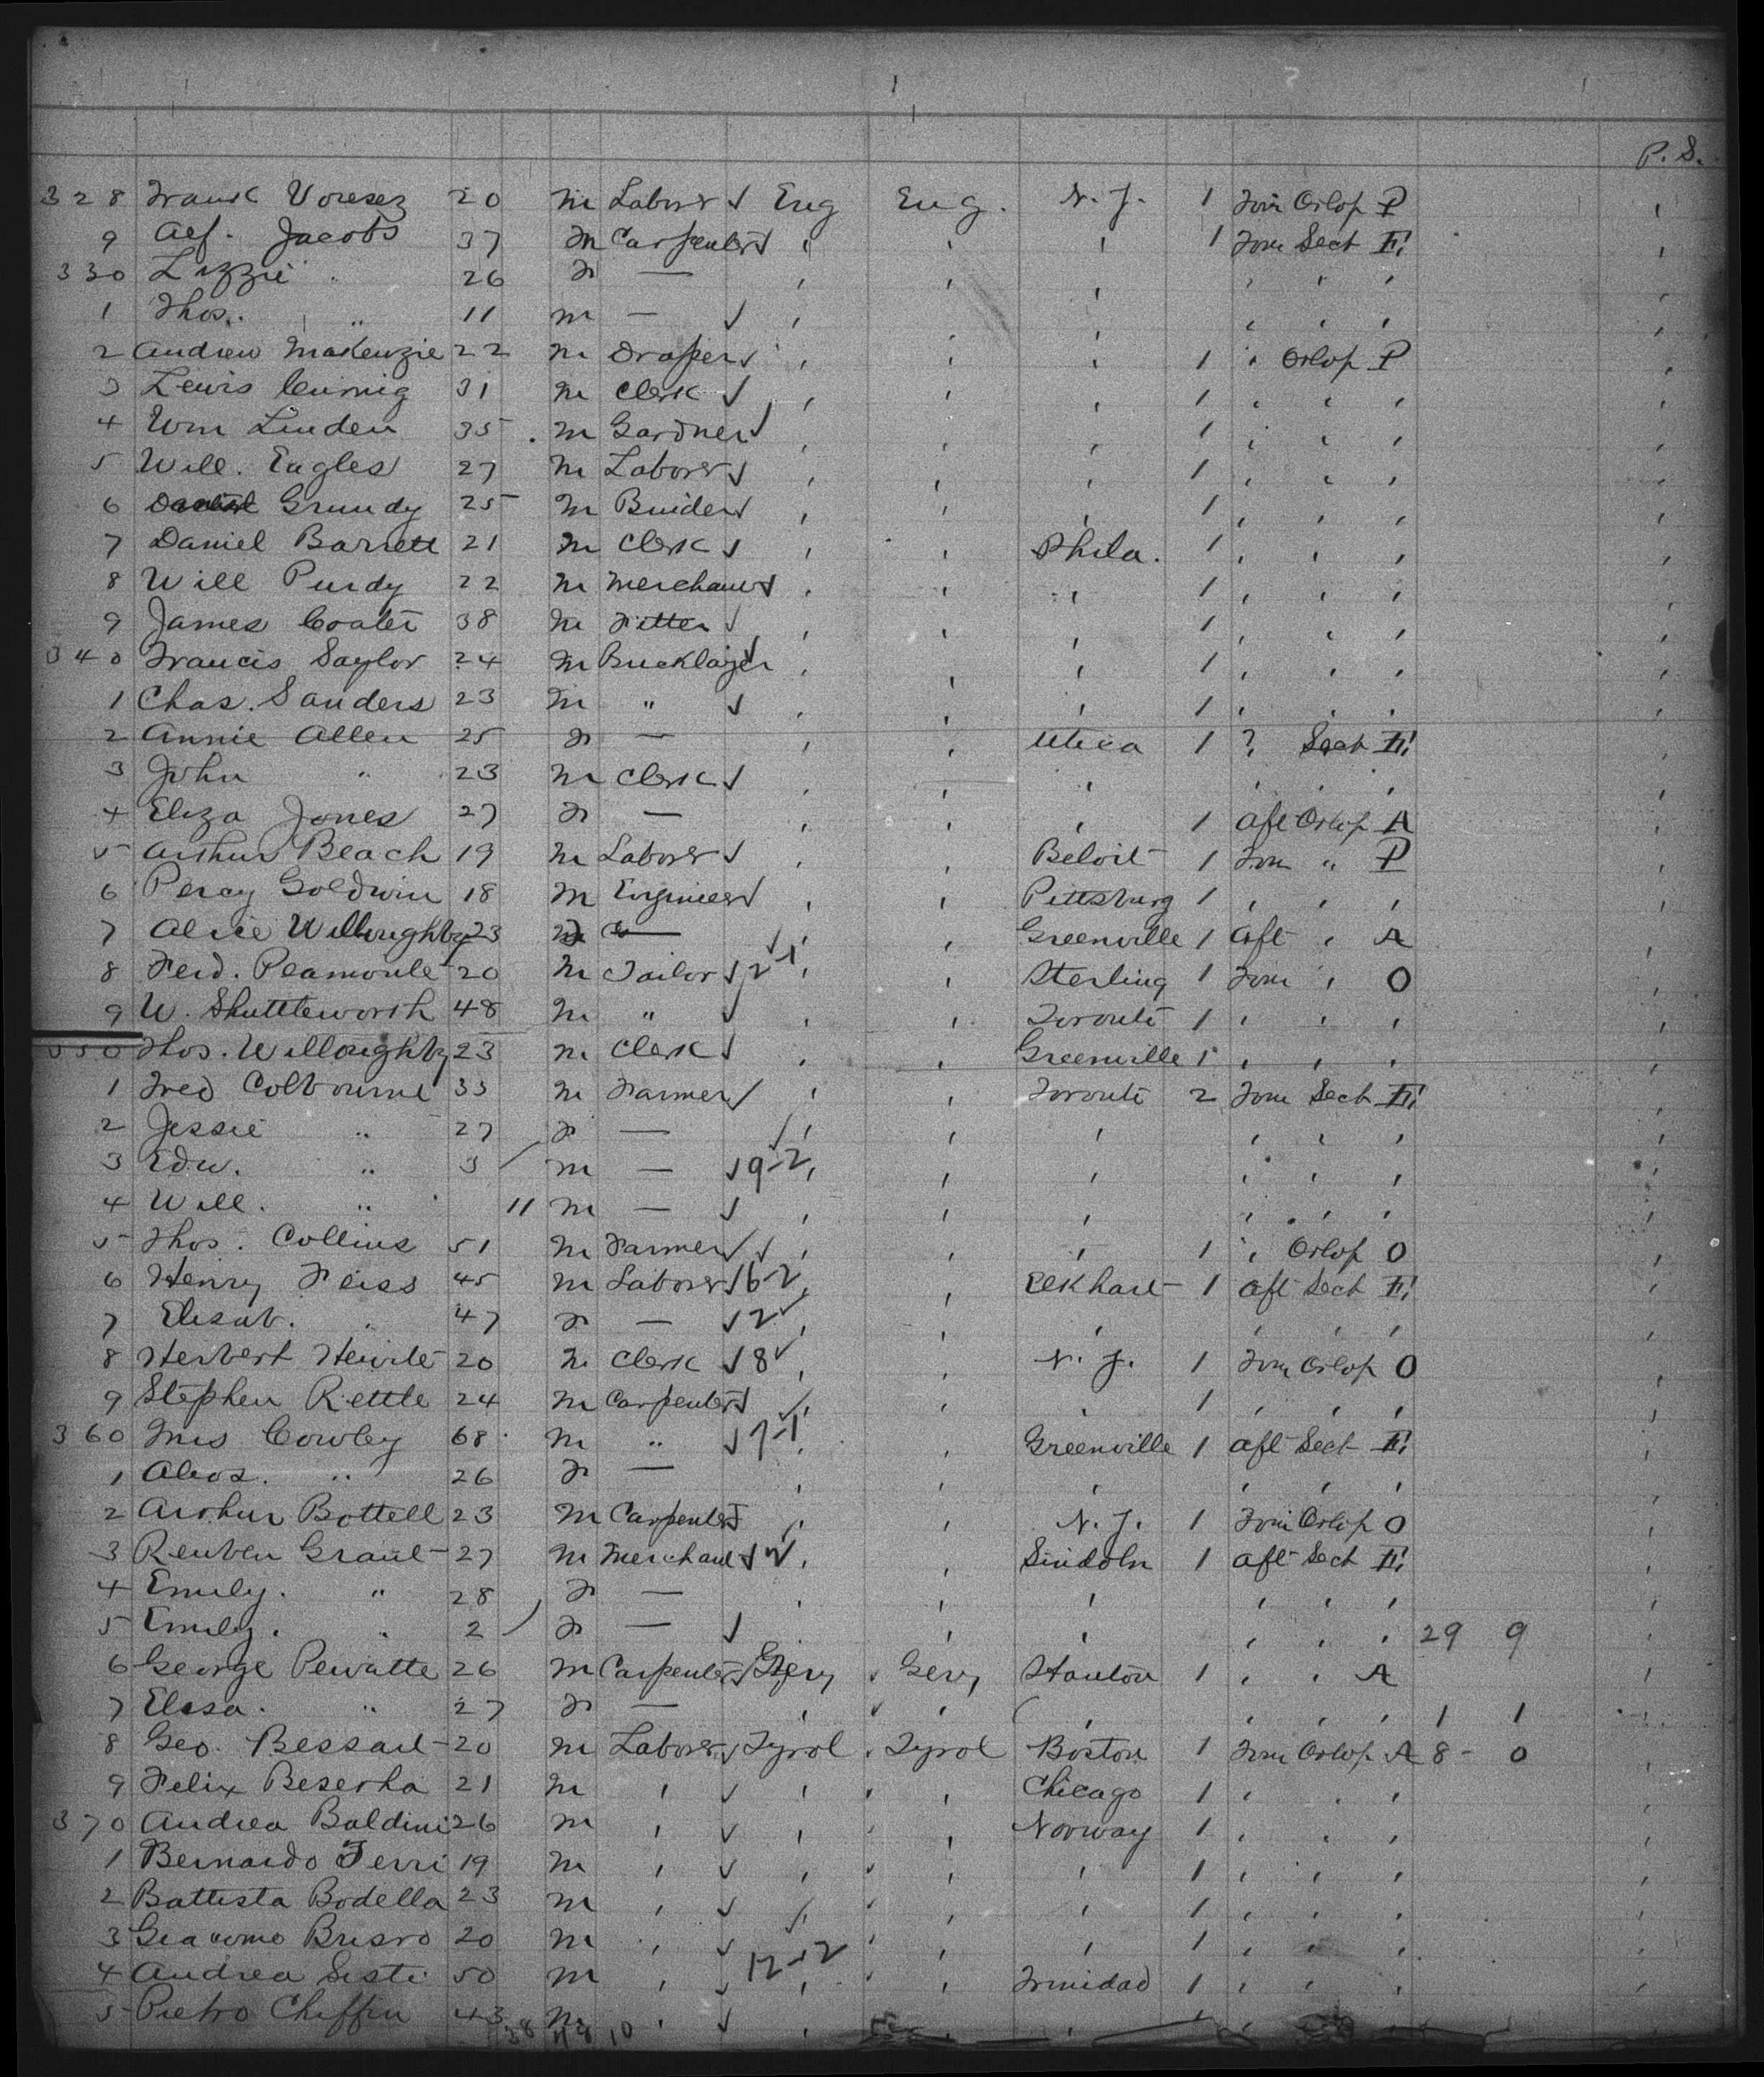 P. S.
328 20 m Laborer Eng Eng. N. J. 1 Orlop P
9 Alf. Jacobs 37 m Carpenter " " " 1 Sect
330 Lizzie " 26 f — " " "
1 Thos. " 11 m — " " "
2 Andrew MaKenzie 22 m Draper " " " 1 " Orlop P
3 Lewis 31 m Clerk " " " 1 " " "
4 Wm Linden 35 m Gardner " " " 1 " " "
5 Will. Eagles 27 m Laborer " " " 1 " " "
6 Grundy 25 m " " " 1 " " "
7 Daniel Barrett 21 m Clerk " " Phila. 1 " " "
8 Will Purdy 22 m Merchant " " " 1 " " "
9 James Coates 38 m Fitter " " " 1 " " "
340 Francis Saylor 24 m Bricklayer " " " 1 " " "
1 Chas. Sanders 23 m " " " " 1 " " "
2 Annie Allen 25 f — " " Utica 1 " Sect
3 John " 23 m Clerk " " " " " "
4 Eliza Jones 27 f — " " " 1 Aft Orlop A
5 Arthur Beach 19 m Laborer " " Beloit 1 " P
6 Percy Goldwin 18 m Engineer " " Pittsburg 1 " " "
7 Alice Willoughby 23 — " " Greenville 1 Aft " A
8 Ferd. 20 m Tailor " " Sterling 1 " O
9 W. Shuttleworth 48 m " " " Toronto 1 " " "
350 Thos. Willoughby 23 m Clerk " " Greenville 1 " " "
1 Fred Colbourne 33 m Farmer " " Toronto 2 Sect
2 Jessie " 27 f — " " " " " "
3 Edw. " 3 m — 9-2 " " " " "
4 Will. " 11 m — " " " " " "
5 Thos. Collins 51 m Farmer " " " 1 " Orlop O
6 Henry Feiss 45 m Laborer 6-2 " Elkhart 1 Aft Sect
7 Elisab. " 47 f — 2 " " " " " "
8 Herbert 20 m Clerk 8 " " N. J. 1 Orlop O
9 Stephen Kettle 24 m Carpenter " " " 1 " " "
360 Cowley 68 m " 7-1 " " Greenville 1 Aft Sect
1 " 26 f — " " " " " "
2 Arthur Bottell 23 m Carpenter " " N. J. 1 Orlop O
3 Reuben Grant 27 m Merchant " " 1 Aft Sect
4 Emily. " 28 f — " " " " " "
5 Emily. " 2 f — " " " " " " 29 9
6 George 26 m Carpenter Gery Gery 1 " " A
7 " 27 f — " " " " " " 1 1
8 Geo. 20 m Laborer Tyrol Tyrol Boston 1 Orlop A 8 - 0
9 Felix 21 m " " " Chicago 1 " " "
370 Andrea Baldini 26 m " " " Norway 1 " " "
1 Bernardo Ferri 19 m " " " " 1 " " "
2 Battista Bodella 23 m " " " " 1 " " "
3 Giacomo 20 m " " " " 1 " " "
4 Andrea Sisti 50 m " 12-2 " " Trinidad 1 " " "
5 Pietro 43 m " " " " " " "
38 48 10